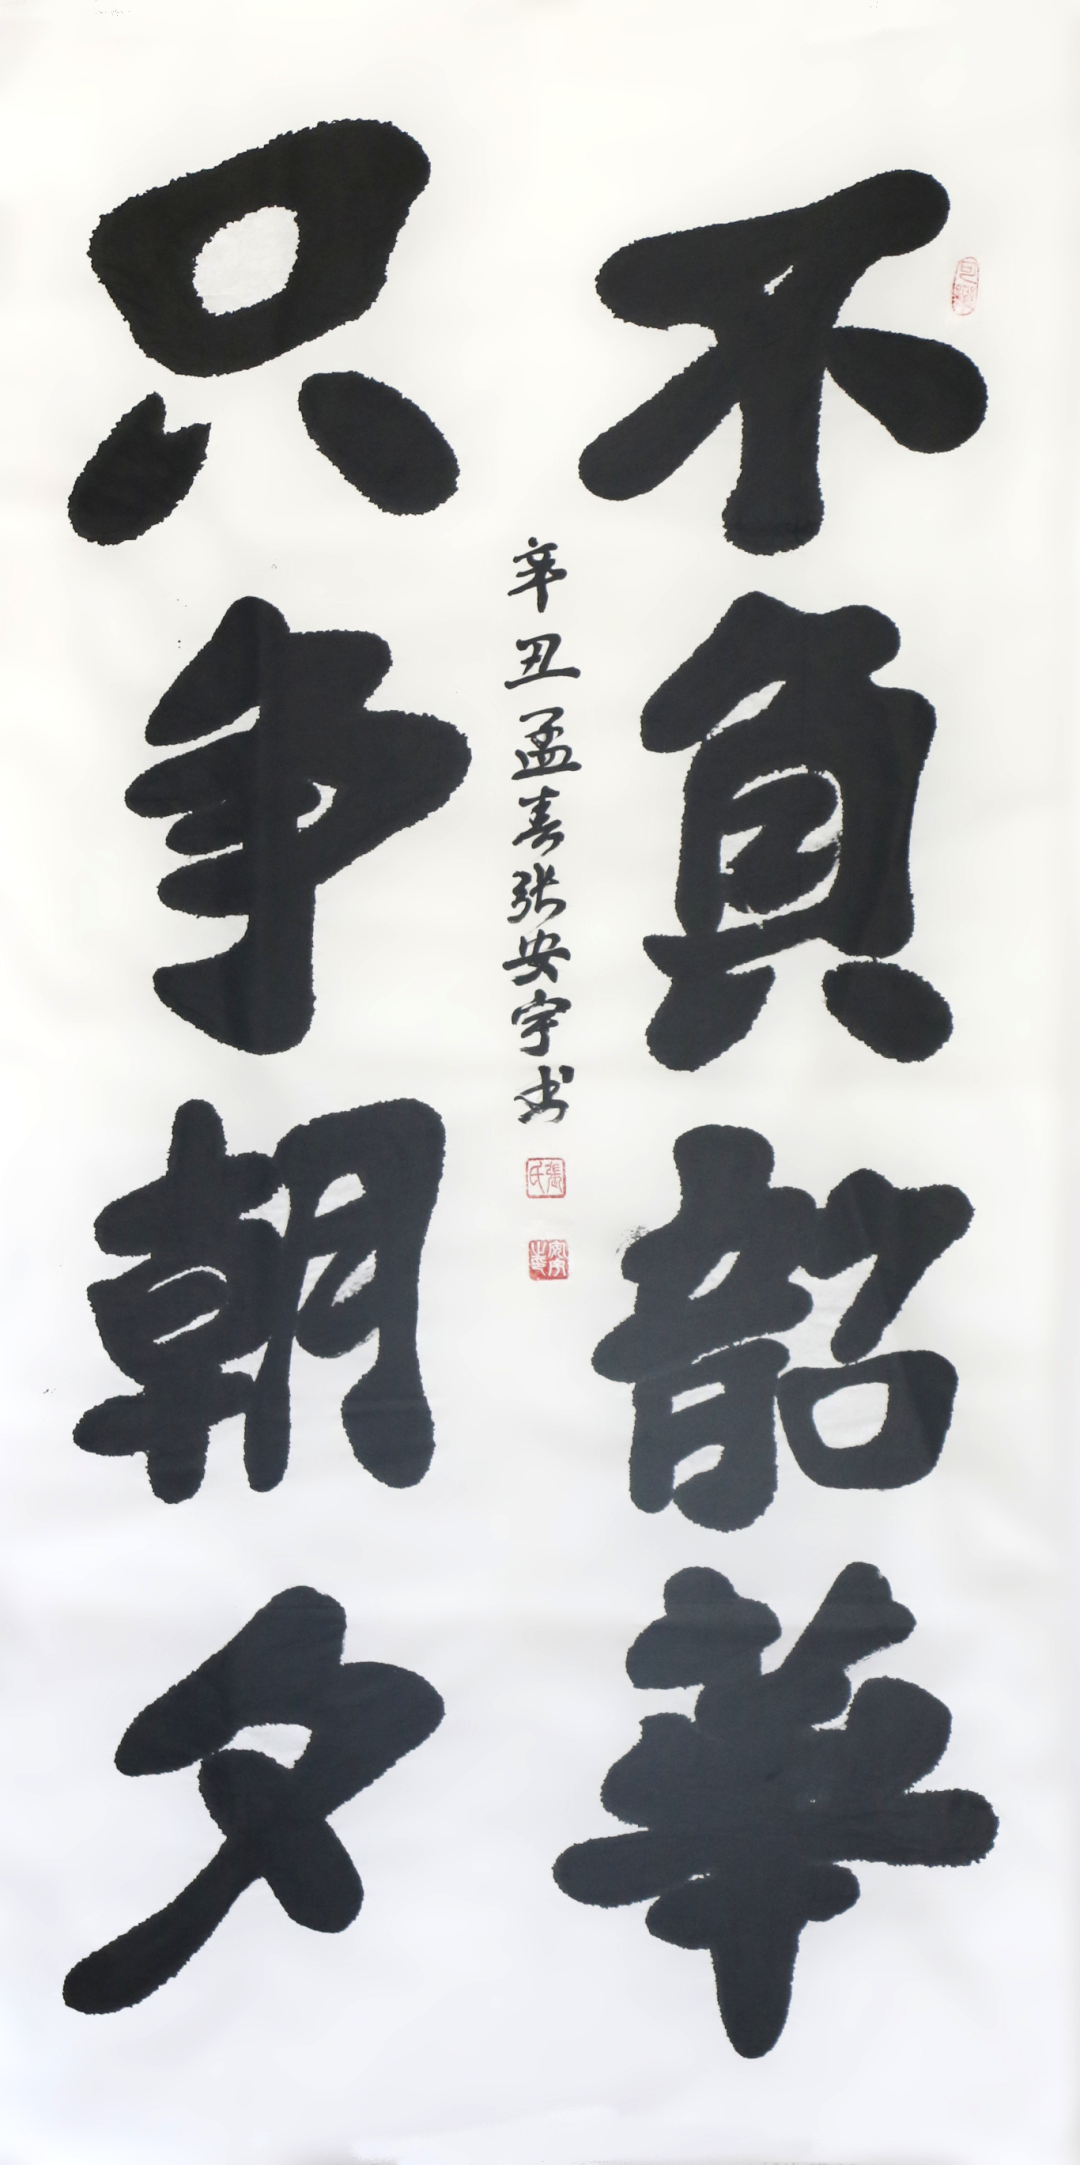 不負韶華
只争朝夕
辛丑孟春张安宇书
張氏